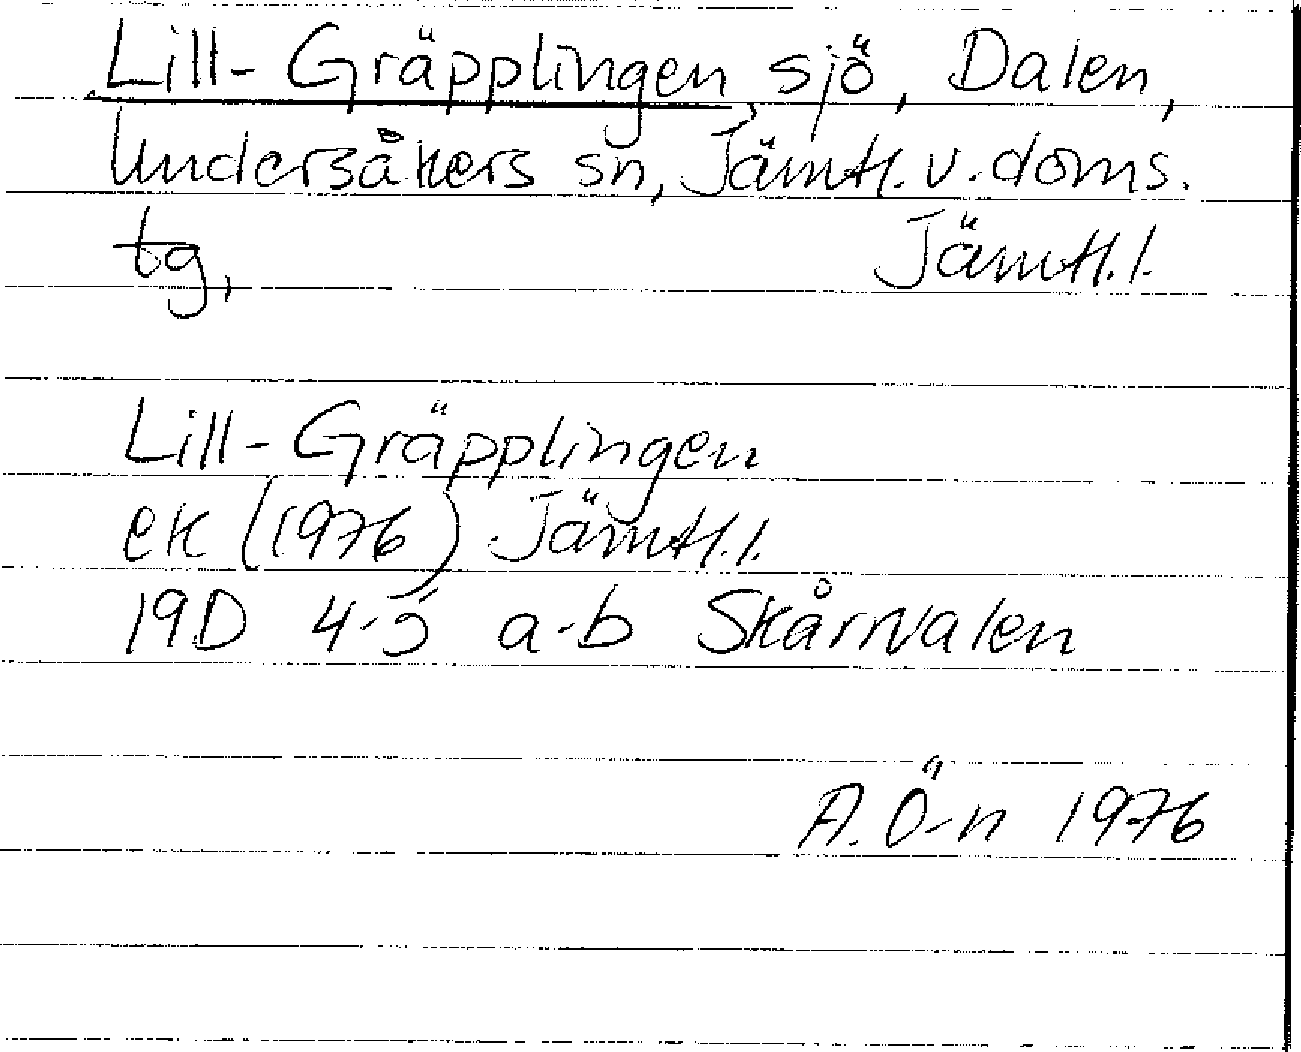 Lill-Gräpplingen, sjö, Dalen,
Undersåkers sn, Jämtl. v. doms.
tg,	Jämtl. l.
Lill-Gräpplingen
ek (1976) Jämtl. l.
19D 4-5 a-b Skårvalen
A. Ö-n 1976